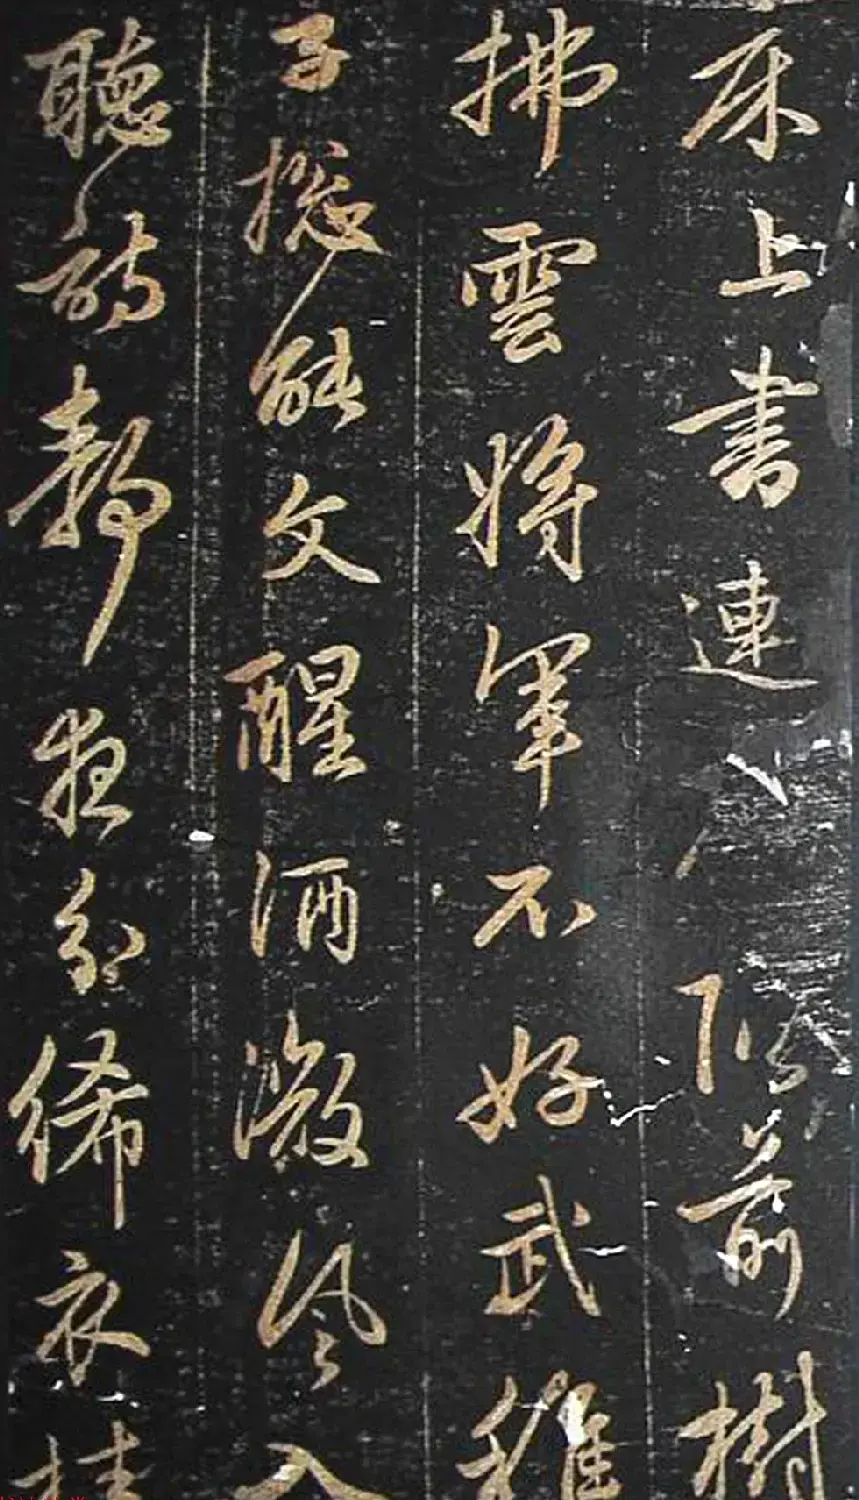 床上書連前樹
拂雲將軍不好武稚
子揔能文醒酒微風入
聽詩靜夜分絺衣挂